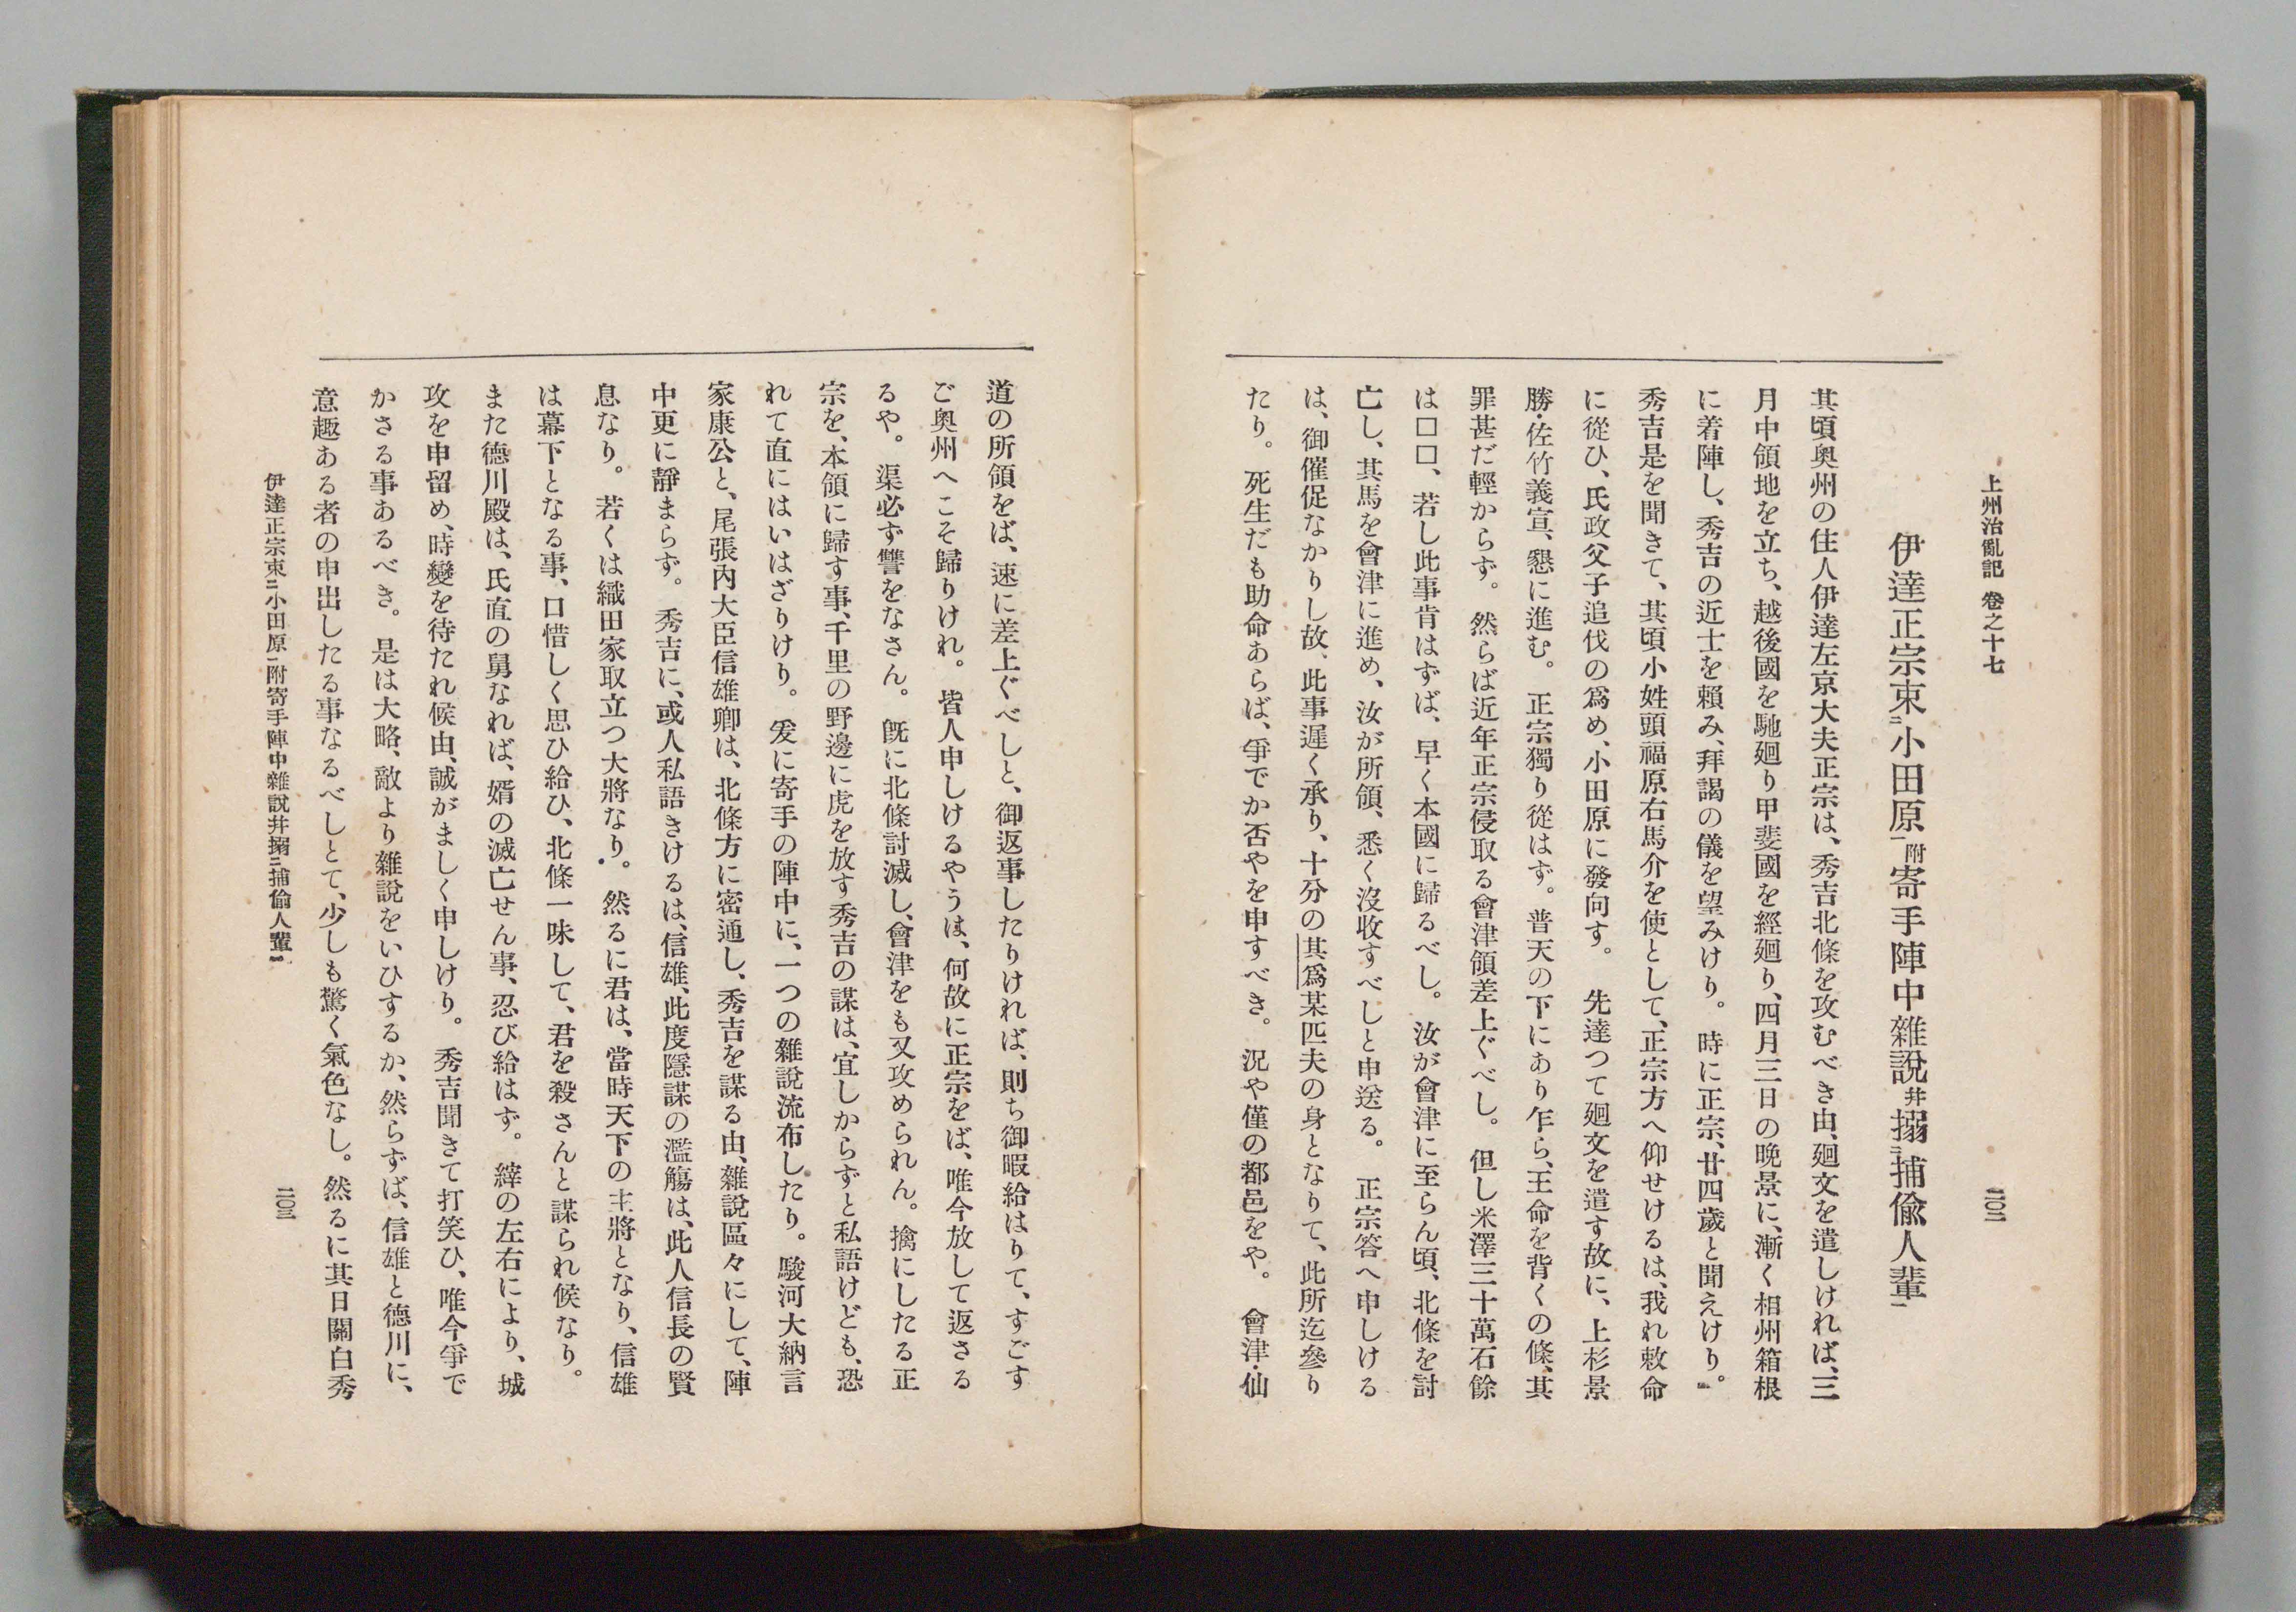 上州治亂記 卷之十七
二〇二
伊達正宗束ニ小田原一附寄手陣中雜說幷搦ニ捕偸人輩一
其頃奧州の住人伊達左京大夫正宗は、秀吉北條を攻むべき由、廻文を遣しければ、三
月中領地を立ち、越後國を馳廻り甲斐國を經廻り、四月三日の晩景に、漸く相州箱根
に着陣し、秀吉の近士を賴み、拜謁の儀を望みけり。時に正宗、廿四歲と聞えけり。
秀吉是を聞きて、其頃小姓頭福原右馬介を使として、正宗方へ仰せけるは、我れ敕命
に從ひ、氏政父子追伐の爲め、小田原に發向す。先達つて廻文を遣す故に、上杉景
勝・佐竹義宣、懇に進む。正宗獨り從はず。普天の下にあり乍ら、王命を背くの條、其
罪甚だ輕からず。然らば近年正宗侵取る會津領差上ぐべし。但し米澤三十萬石餘
は□□□、若し此事肯はずば、早く本國に歸るべし。汝が會津に至らん頃、北條を討
亡し、其馬を會津に進め、汝が所領、悉く沒收すべしと申送る。正宗答へ申しける
は、御催促なかりし故、此事遲く承り、十分の其爲某匹夫の身となりて、此所迄參り
たり。死生だも助命あらば、爭でか否やを申すべき。況や僅の都邑をや。會津・仙
道の所領をば、速に差上ぐべしと、御返事したりければ、則ち御暇給はりて、すごす
ご奧州へこそ歸りけれ。皆人申しけるやうは、何故に正宗をば、唯今放して返さる
るや。渠必ず讐をなさん。既に北條討滅し、會津をも又攻められん。擒にしたる正
宗を、本領に歸す事、千里の野邊に虎を放す秀吉の謀は、宜しからずと私語けども、恐
れて直にはいはざりけり。爰に寄手の陣中に、一つの雜說流布したり。駿河大納言
家康公と、尾張內大臣信雄卿は、北條方に密通し、秀吉を謀る由、雜說區々にして、陣
中更に靜まらず。秀吉に、或人私語きけるは、信雄、此度隱謀の濫觴は、此人信長の賢
息なり。若くは織田家取立つ大將なり。然るに君は、當時天下の主將となり、信雄
は幕下となる事、口惜しく思ひ給ひ、北條一味して、君を殺さんと謀られ候なり。
また德川殿は、氏直の舅なれば、婿の滅亡せん事、忍び給はず。縡の左右により、城
攻を申留め、時變を待たれ候由、誠がましく申しけり。秀吉聞きて打笑ひ、唯今爭で
かさる事あるべき。是は大略、敵より雜說をいひするか、然らずば、信雄と德川に、
意趣ある者の申出したる事なるべしとて、少しも驚く氣色なし。然るに其日關白秀
伊達正宗束ニ小田原一附寄手陣中雜說幷搦ニ捕偸人輩一
二〇三